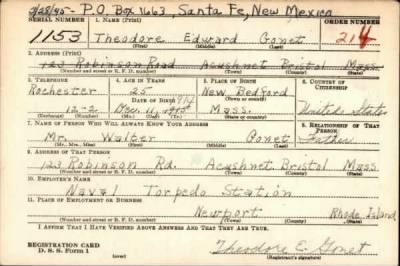 2/28/45 - P.O. Box 1663, Santa Fe, New Mexico
SERIAL NUMBER 1. NAME (Print) ORDER NUMBER
1153 Theodore Edward Gonet 214
(First) (Middle) (Last)
2. ADDRESS (Print)
123 Robinson Road Acushnet Bristol Mass.
(Number and street or R. F. D. number) (Town) (County) (State)
3. TELEPHONE 4. AGE IN YEARS 5. PLACE OF BIRTH 6. COUNTRY OF CITIZENSHIP
Rochester 25 New Bedford
DATE OF BIRTH (Town or county)
12-2 Dec. Mass. United States
(Exchange) (Number) (Mo.) (Day) (Yr.) (State or country)
7. NAME OF PERSON WHO WILL ALWAYS KNOW YOUR ADDRESS 8. RELATIONSHIP OF THAT PERSON
Mr. Walter Gonet Father
(Mr., Mrs., Miss) (First) (Middle) (Last)
9. ADDRESS OF THAT PERSON
123 Robinson Rd. Acushnet Bristol Mass
(Number and street or R. F. D. number) (Town) (County) (State)
10. EMPLOYER'S NAME
Naval Torpedo Station
11. PLACE OF EMPLOYMENT OR BUSINESS
Newport Rhode Island
(Number and street or R. F. D. number) (Town) (County) (State)
I AFFIRM THAT I HAVE VERIFIED ABOVE ANSWERS AND THAT THEY ARE TRUE.
REGISTRATION CARD
D. S. S. Form 1 (over) Theodore E. Gonet
(Registrant's signature)